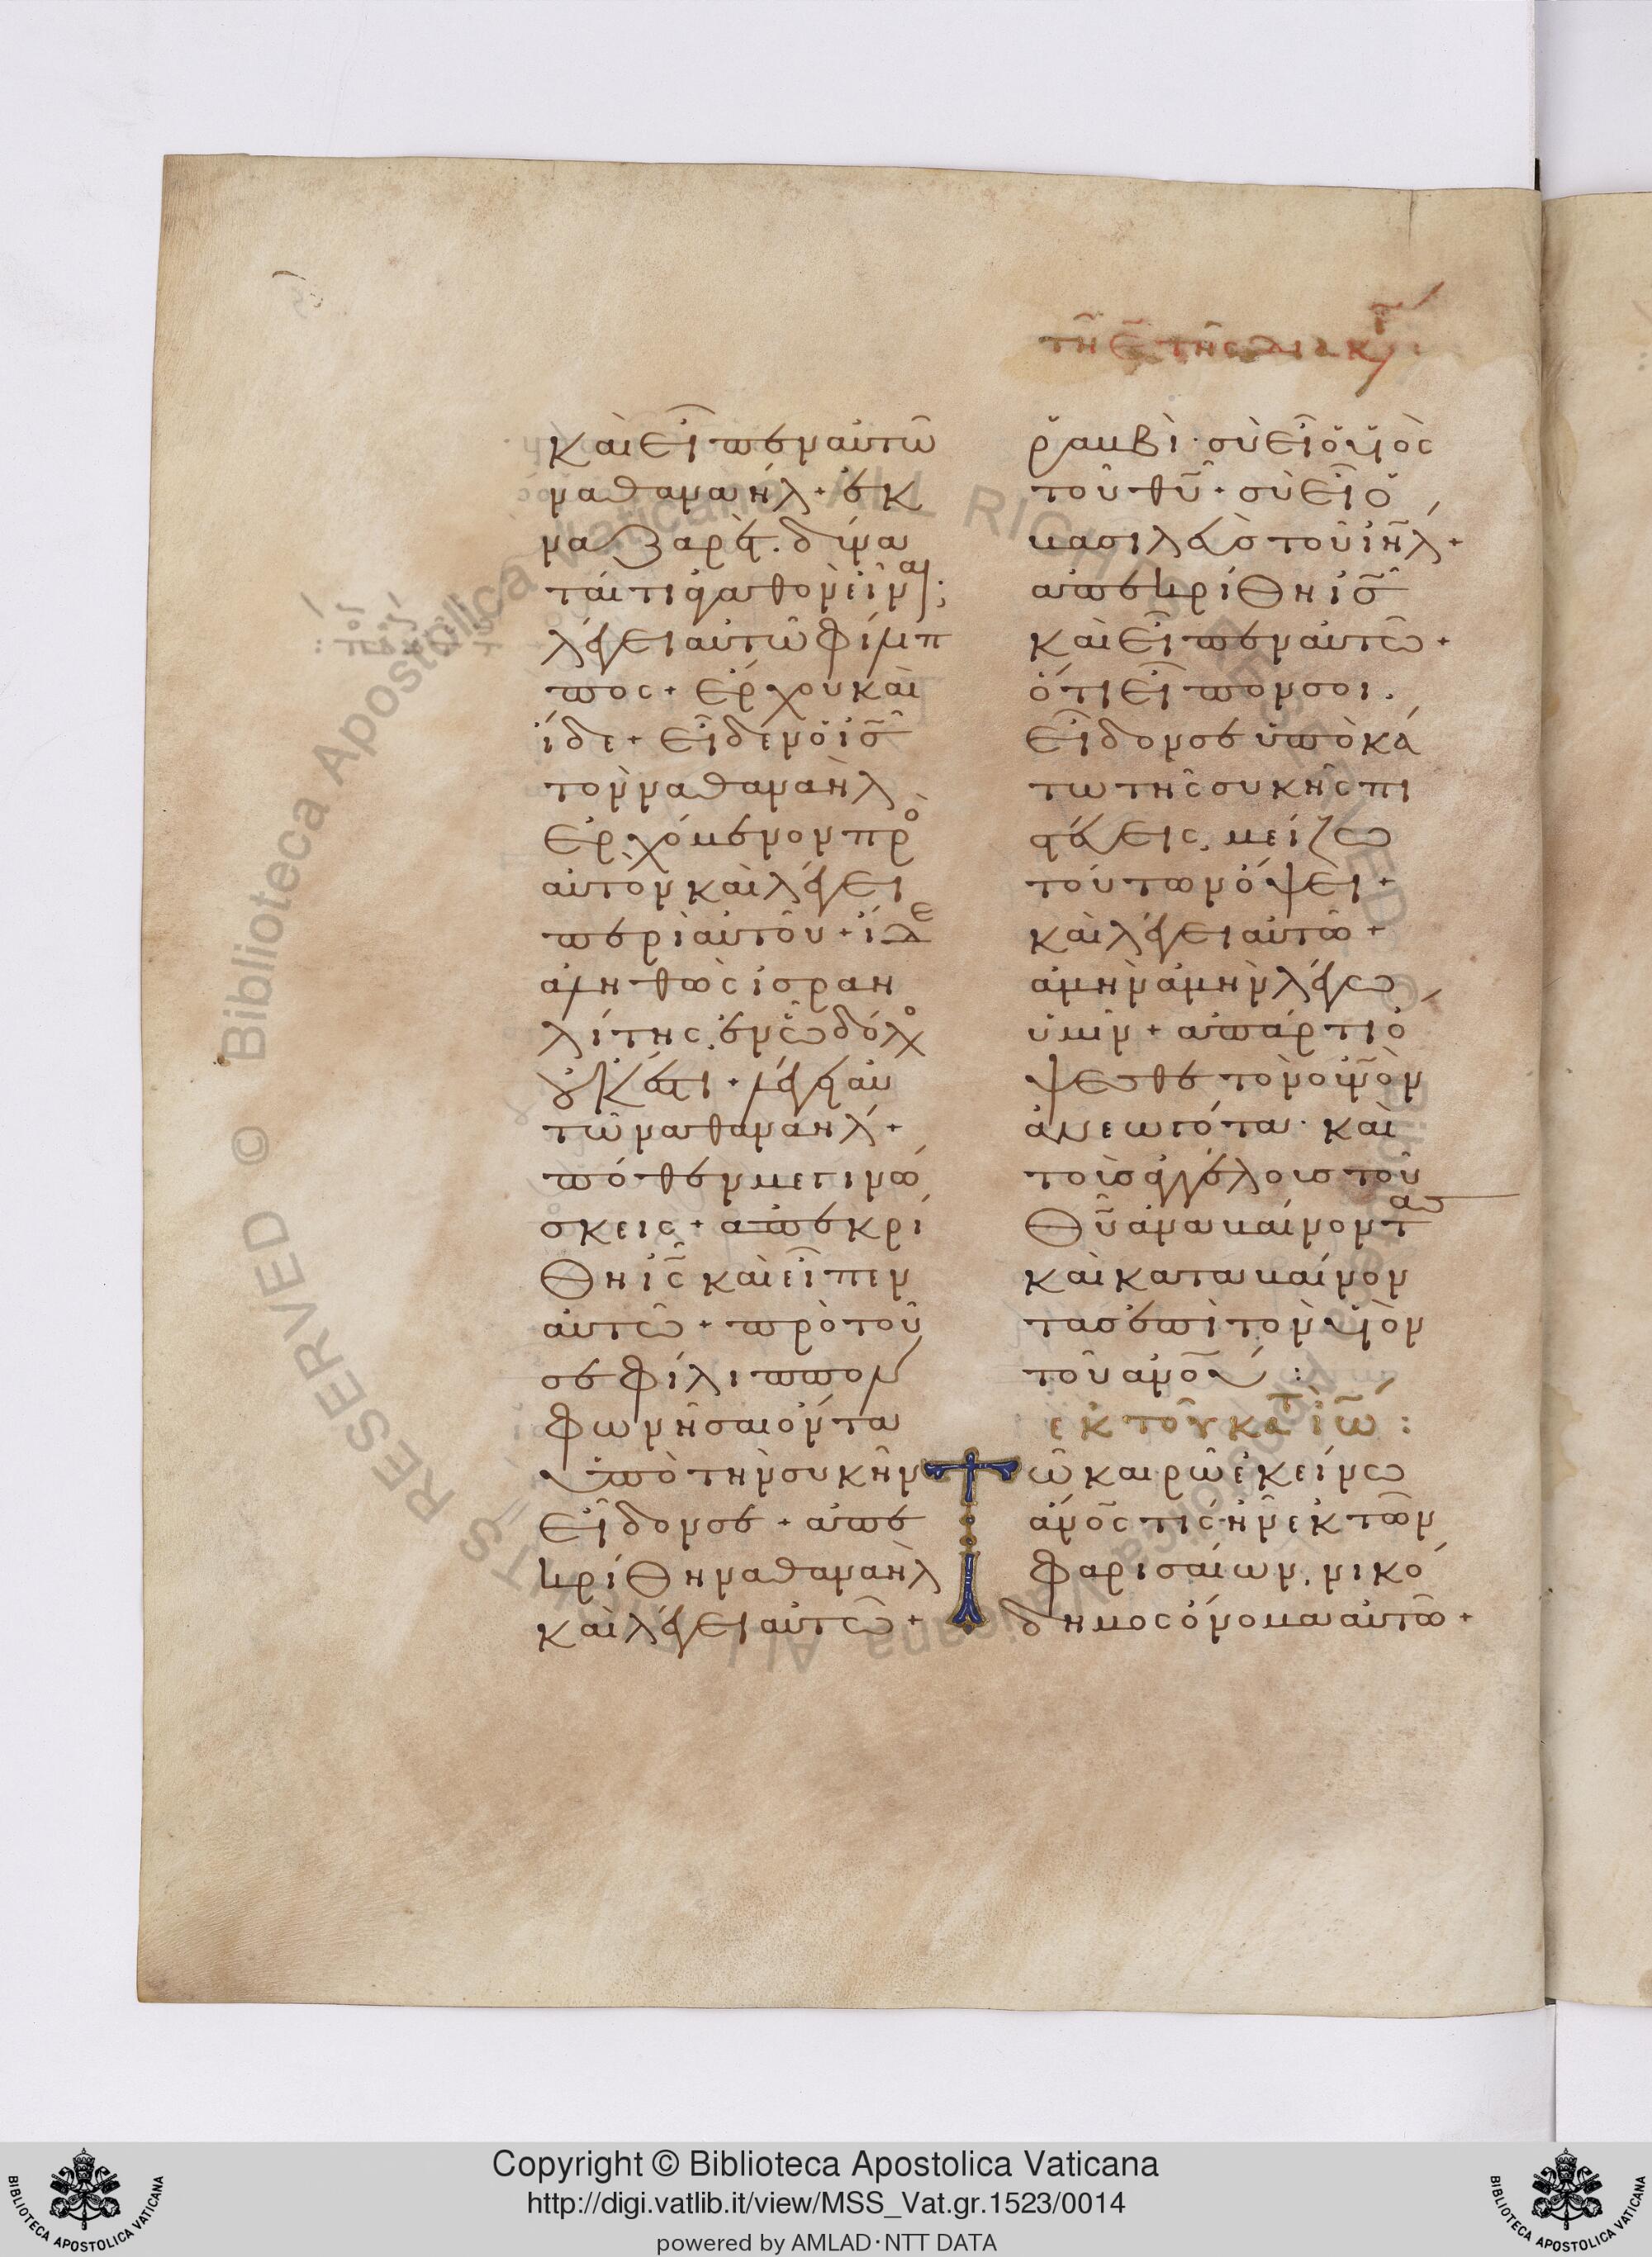 τῆ ε̄ τῆς διακ
καὶ εἶπεν αὐτῶ
ναθαναήλ + ἐκ
ναζαρὲτ. δύνα
ταί τι ἀγαθὸν εἶναι;
λέγει αὐτῶ φίλιπ
πος + ἔρχου καὶ
ἴδε + εἶδεν ὁ ἰ̅ς̅
τὸν ναθαναὴλ
ἐρχόμενον πρὸ
αὐτὸν καὶ λέγει
περὶ αὐτοῦ + ἴδε
ἀληθῶς ἰσραη
λίτης. ἐν ὧ δόλο
οὐκ ἔστι + λέγει αὐ
τῶ ναθαναήλ +
πόθεν με γινώ
σκεις + ἀπεκρί
θη ἰ̅ς̅ καὶ εἶπεν
αὐτῶ + πρὸ τοῦ
σε φίλιππον
φωνῆσαι ὄντα
ὑπὸ τὴν συκῆν
εἶδόν σε + ἀπε
κρίθη ναθαναὴλ
καὶ λέγει αὐτῶ +
ῥαββὶ · σὺ εἶ ὁ υἱὸς
τοῦ θ̅υ̅ + σὺ εἶ ὁ
βασιλεὺς τοῦ ἰ̅η̅λ̅ +
ἀπεκρίθη ἰ̅ς̅
καὶ εἶπεν αὐτῶ +
ὅτι εἶπόν σοι.
εἶδόν σε ὑποκά
τω τῆς συκῆς πι
στεύεις. μείζω
τούτων ὄψει +
καὶ λέγει αὐτῶ +
ἀμὴν ἀμὴν λέγω
ὑμῖν + ἀπάρτι ὄ
ψεσθε τὸν ο̅υ̅ν̅ὸν
ἀνεωγότα · καὶ
τοὺς ἀγγέλους τοῦ
θ̅υ̅ ἀναβαίνοντας
καὶ καταβαίνον
τας ἐπὶ τὸν υἱὸν
τοῦ ἀ̅ν̅ο̅υ̅ :
ἐκ τοῦ κατ ἰω̅ :
Τῶ καιρῶ ἐκείνω
ἀ̅ν̅ο̅ς̅ τίς ἦν ἐκ τῶν
φαρισαίων. νικό
δημος ὄνομα αὐτῶ +
Copyright © Biblioteca Apostolica Vaticana
http://digi.vatlib.it/view/MSS_Vat.gr.1523/0014
powered by AMLAD·NTT DATA
BIBLIOTECA APOSTOLICA VATICANA
BIBLIOTECA APOSTOLICA VATICANA
© Biblioteca Apostolica Vaticana ALL RIGHTS RESERVED © Biblioteca Apostolica Vaticana ALL RIGHTS RESERVED